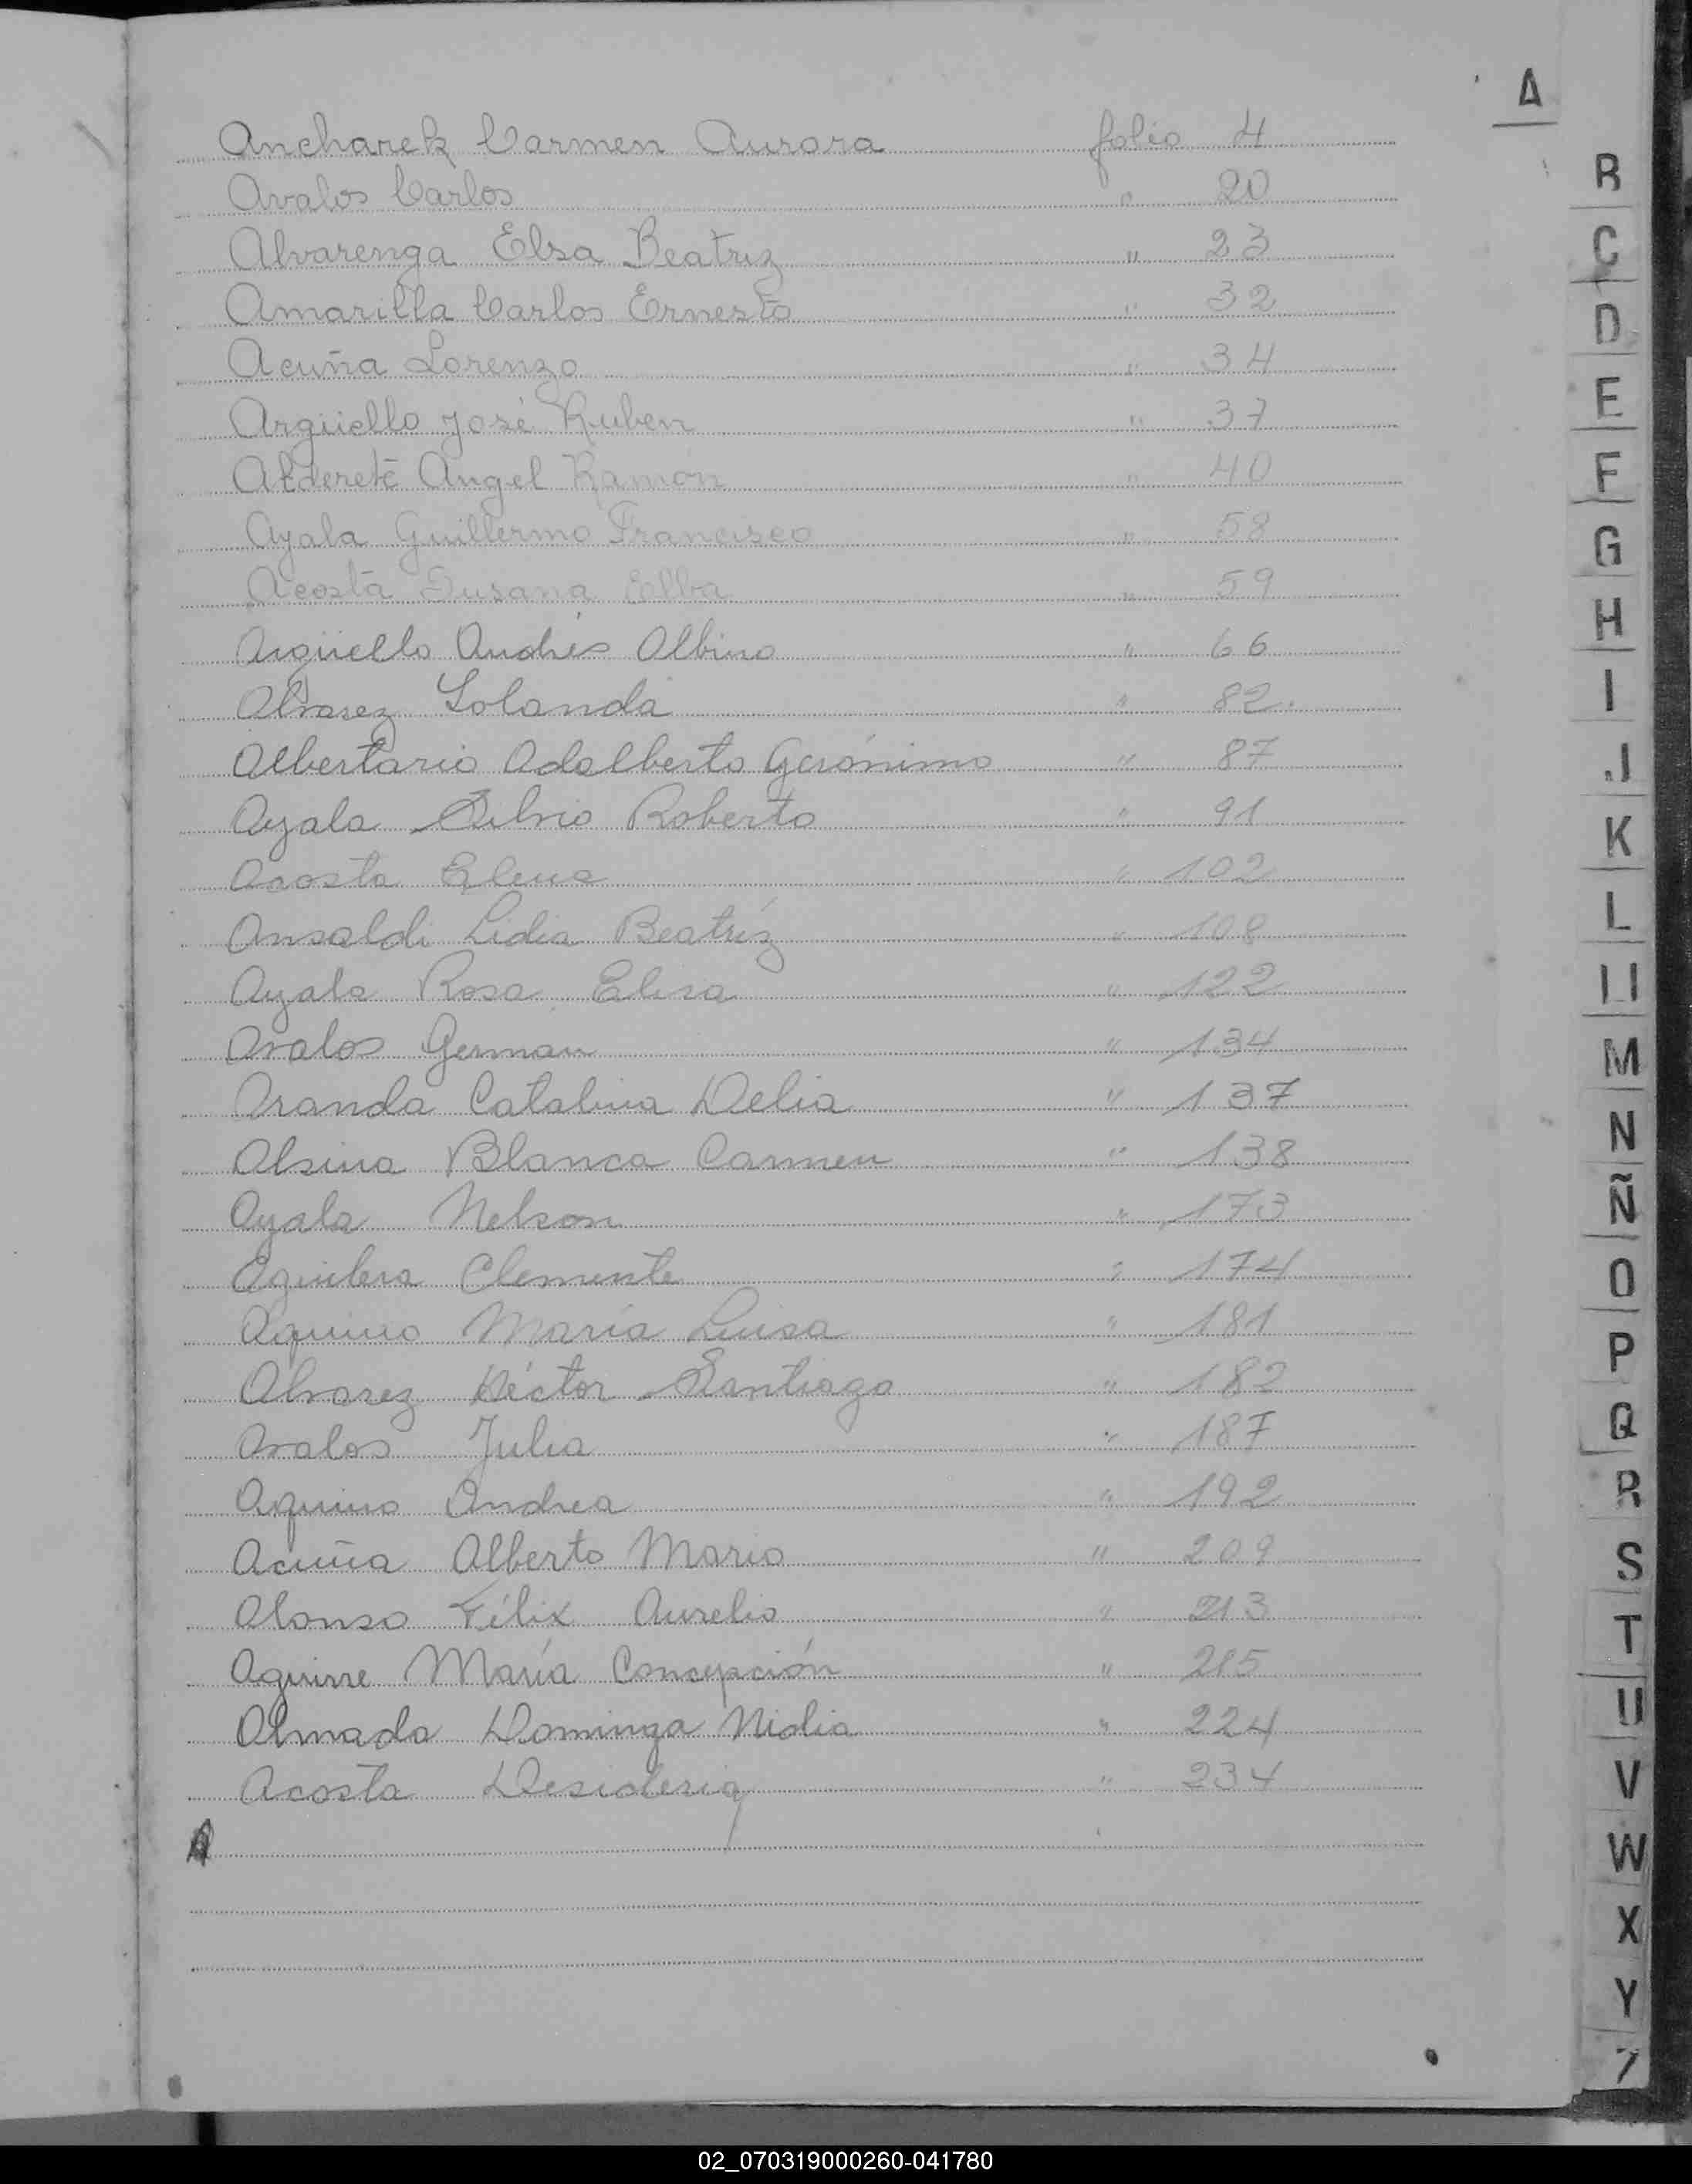 A
Ancharek Carmen Aurora folio 4
Avalos Carlos " 20
Alvarenga Elsa Beatriz " 23
Amarilla Carlos Ernesto " 32
Acuña Lorenzo " 34
Argüello José Ruben " 37
Alderete Angel Ramón " 40
Ayala Guillermo Francisco " 58
Acosta Susana Elba " 59
Argüello Andrés Albino " 66
Alvarez Yolanda " 82.
Albertario Adalberto Gerónimo " 87
Ayala Silvio Roberto " 91
Acosta Elena " 102
Ansaldi Lidia Beatríz " 108
Ayala Rosa Elisa " 122
Avalos German " 134
Aranda Catalina Delia " 137
Alsina Blanca Carmen " 138
Ayala Nelson " 173
Aguilera Clemente " 174
Aquino María Luisa " 181
Alvarez Héctor Santiago " 182
Avalos Julia " 187
Aquino Andrea " 192
Acuña Alberto Mario " 209
Alonso Félix Aurelio " 213
Aguirre María Concepción " 215
Almada Dominga Nidia " 224
Acosta Desideria " 234
A
B
C
D
E
F
G
H
I
J
K
L
Ll
M
N
Ñ
O
P
Q
R
S
T
U
V
W
X
Y
Z
02_070319000260-041780